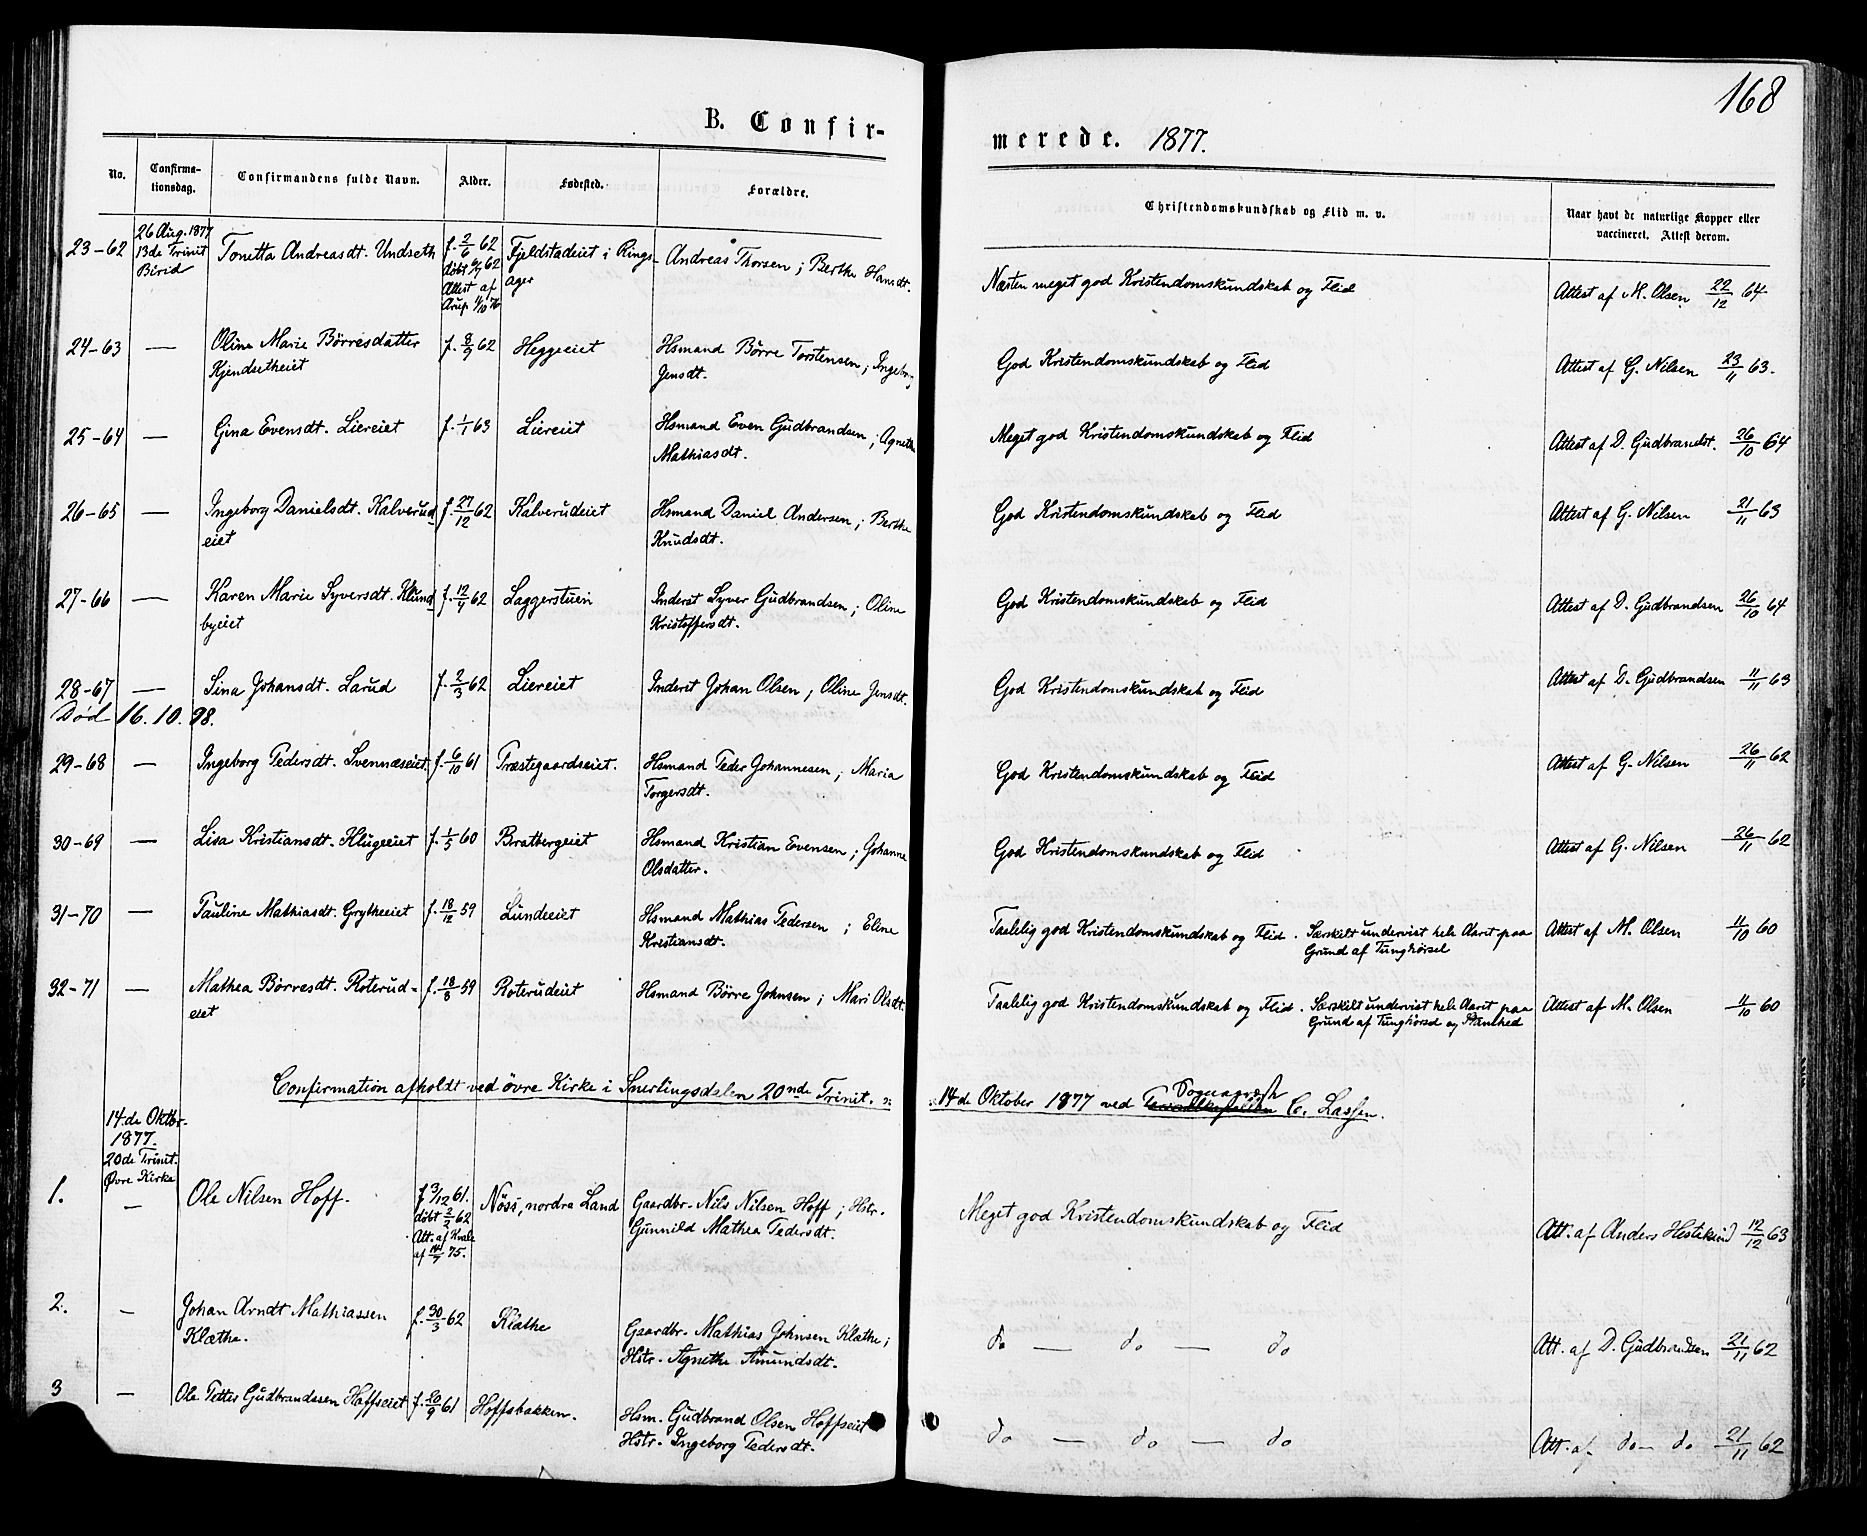 168
B. Confir-
merede. 1877.
No.
Confirma-
tionsdag.
Confirmandens fulde Navn.
Alder.
Fødested.
Forældre.
Christendomskundskab og Flid m. v.
Naar havt de naturlige Kopper eller
vaccineret. Attest derom.
23-62
26 Aug. 1877
13de Trinit
Birid
Tonetta Andreasdt. Undseth
f. 2/6 62
døbt 6/7 62
Attest af
Aup. 4/10 76
Fjeldstadeiet i Rings-
ager
Andreas Thorsen; Berthe Hansdt.
Næsten meget god Kristendomskundskab og Flid
Attest af M. Olsen 22/12 64
24-63
—
Oline Marie Børresdatter
Kjendsetheiet
f. 8/9 62
Heggeeiet
Hsmand Børre Torstensen; Ingeborg
Jensdt.
God Kristendomskundskab og Flid
Attest af G. Nilsen 23/11 63.
25-64
—
Gina Evensdt. Liereiet
f. 1/1 63
Liereiet
Hsmand Even Gudbrandsen; Agnethe
Mathiasdt.
Meget god Kristendomskundskab og Flid
Attest af D. Gudbrandst. 26/10 64
26-65
—
Ingeborg Danielsdt. Kalverud-
eiet
f. 27/12 62
Kalverudeiet
Hsmand Daniel Andersen; Berthe
Knudsdt.
God Kristendomskundskab og Flid
Attest af G. Nilsen 21/11 63
27-66
—
Karen Marie Syversdt. Klund-
byeiet
f. 12/4 62
Laggerstuen
Inderst Syver Gudbrandsen; Oline
Kristoffersdt.
God Kristendomskundskab og Flid
Attest af D. Gudbrandsen 26/10 64
28-67
—
Sina Johansdt. Larud
f. 2/3 62
Liereiet
Inderst Johan Olsen; Oline Jensdt.
God Kristendomskundskab og Flid
Attest af D. Gudbrandsen 11/11 63
Død 16. 10. 98.
29-68
—
Ingeborg Pedersdt. Svennæseiet
f. 6/10 61
Præstegaardseiet.
Hsmand Peder Johannesen; Maria
Torgersdt.
God Kristendomskundskab og Flid
Attest af G. Nilsen 26/11 62
30-69
—
Lisa Kristiansdt. Klugeeiet
f. 1/5 60
Bratbergeiet
Hsmand Kristian Evensen; Johanne
Olsdatter.
God Kristendomskundskab og Flid
Attest af G. Nilsen 26/11 62
31-70
—
Pauline Mathiasdt. Grytheeiet
f. 18/12 59
Lundeeiet
Hsmand Mathias Pedersen; Eline
Kristiansdt.
Taalelig god Kristendomskundskab og Flid. Særskilt undervist hele Aaret paa
Grund af Tunghørsel
Attest af M. Olsen 11/10 60
32-71
—
Mathea Børresdt. Roterud-
eiet
f. 18/8 59
Roterudeiet
Hsmand Børre Johnsen; Mari Olsdt.
Taalelig god Kristendomskundskab og Flid. Særskilt undervist hele Aaret paa
Grund af Tunghørsel og
Attest af M. Olsen 11/10 60
Confirmation afholdt ved øvre Kirke i Snertingsdalen 20nde Trinit. :
: 14de Oktober 1877 ved Sognepræst C. Lassen.
14.de Oktbr.
1877.
20de Trinit.
Øvre Kirke
1.
—
Ole Nilsen Hoff.
f 3/12 61.
døbt 2/2 62
Att. af Kvale
af 14/7 75.
Nöss, nordra Land
Gaardbr. Nils Nilsen Hoff; Hstr.
Gunnild Mathea Pedersdt.
Meget god Kristendomskundskab og Flid
Att. af Anders Hestekind 12/12 63
2.
—
Johan Arndt Mathiassen
Klæthe.
f. 30/3 62
Klæthe
Gaardbr. Mathias Johnsen Klæthe;
Hstr. Agnethe Amundsdt.
do — do — do
Att. af D. Gudbrandsen 21/11 62
3
—
Ole Petter Gudbrandssen Hoffseiet
f. 20/9 61
Hoffsbakken.
Hsm. Gudbrand Olsen Hoffseiet
Hstr. Ingeborg Pedersdt.
do — do — do
Att. af do — do 21/11 62